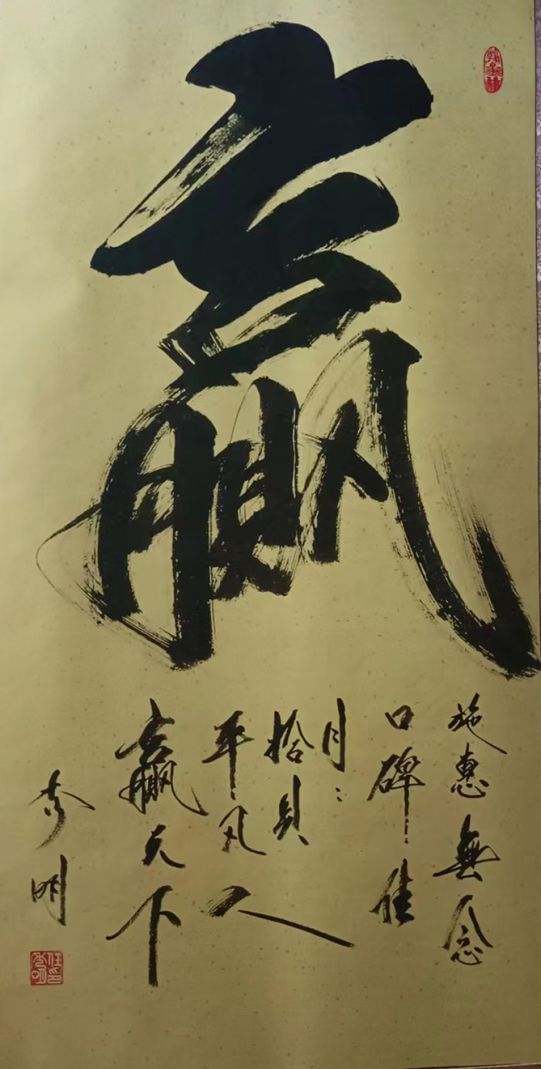 贏
施惠無念
口碑佳
月〻
拾貝
平凡人
贏天下
秀明